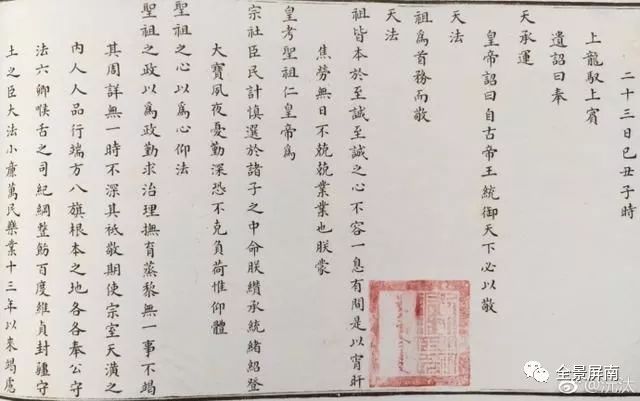 二十三日己丑子時
上龍馭上賓
遺詔曰奉
天承運
皇帝詔曰自古帝王統御天下必以敬
天法
祖為首務而敬
天法
祖皆本於至誠至誠之心不容一息有間是以宵旰
焦勞無日不兢兢業業也朕蒙
皇考聖祖仁皇帝為
宗社臣民計慎選於諸子之中命朕纘承統緒紹登
大寶夙夜憂勤深恐不克負荷惟仰體
聖祖之心以為心仰法
聖祖之政以為政勤求治理撫育蒸黎無一事不竭
其周詳無一時不深其祗敬期使宗室天潢之
內人人品行端方八旗根本之地各各奉公守
法六卿喉舌之司紀綱整飭百度維貞封疆守
土之臣大法小廉萬民樂業十三年以來竭慮
全景屏南